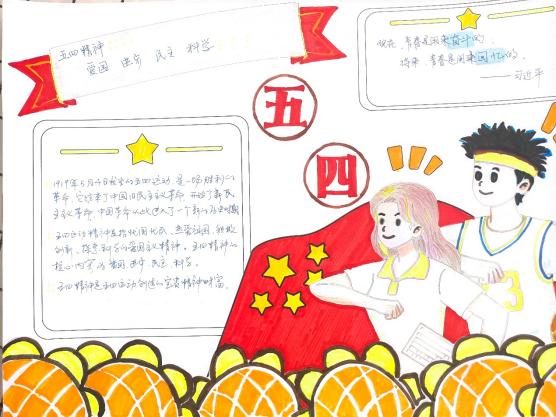 五四精神
爱国 进步 民主 科学
现在,青春是用来奋斗的,
将来,青春是用来回忆的。
——习近平
五
四
1919年5月4日发生的五四运动,是一场胜利的
革命,它结束了中国旧民主主义革命,开始了新民
主主义革命,中国革命从此进入了一个新的历史时期
五四运动精神是指忧国忧民、热爱祖国、积极
创新、探索科学的爱国主义精神。五四精神的
核心内容为爱国、进步、民主、科学。
五四精神是五四运动创造的宝贵精神财富。
3